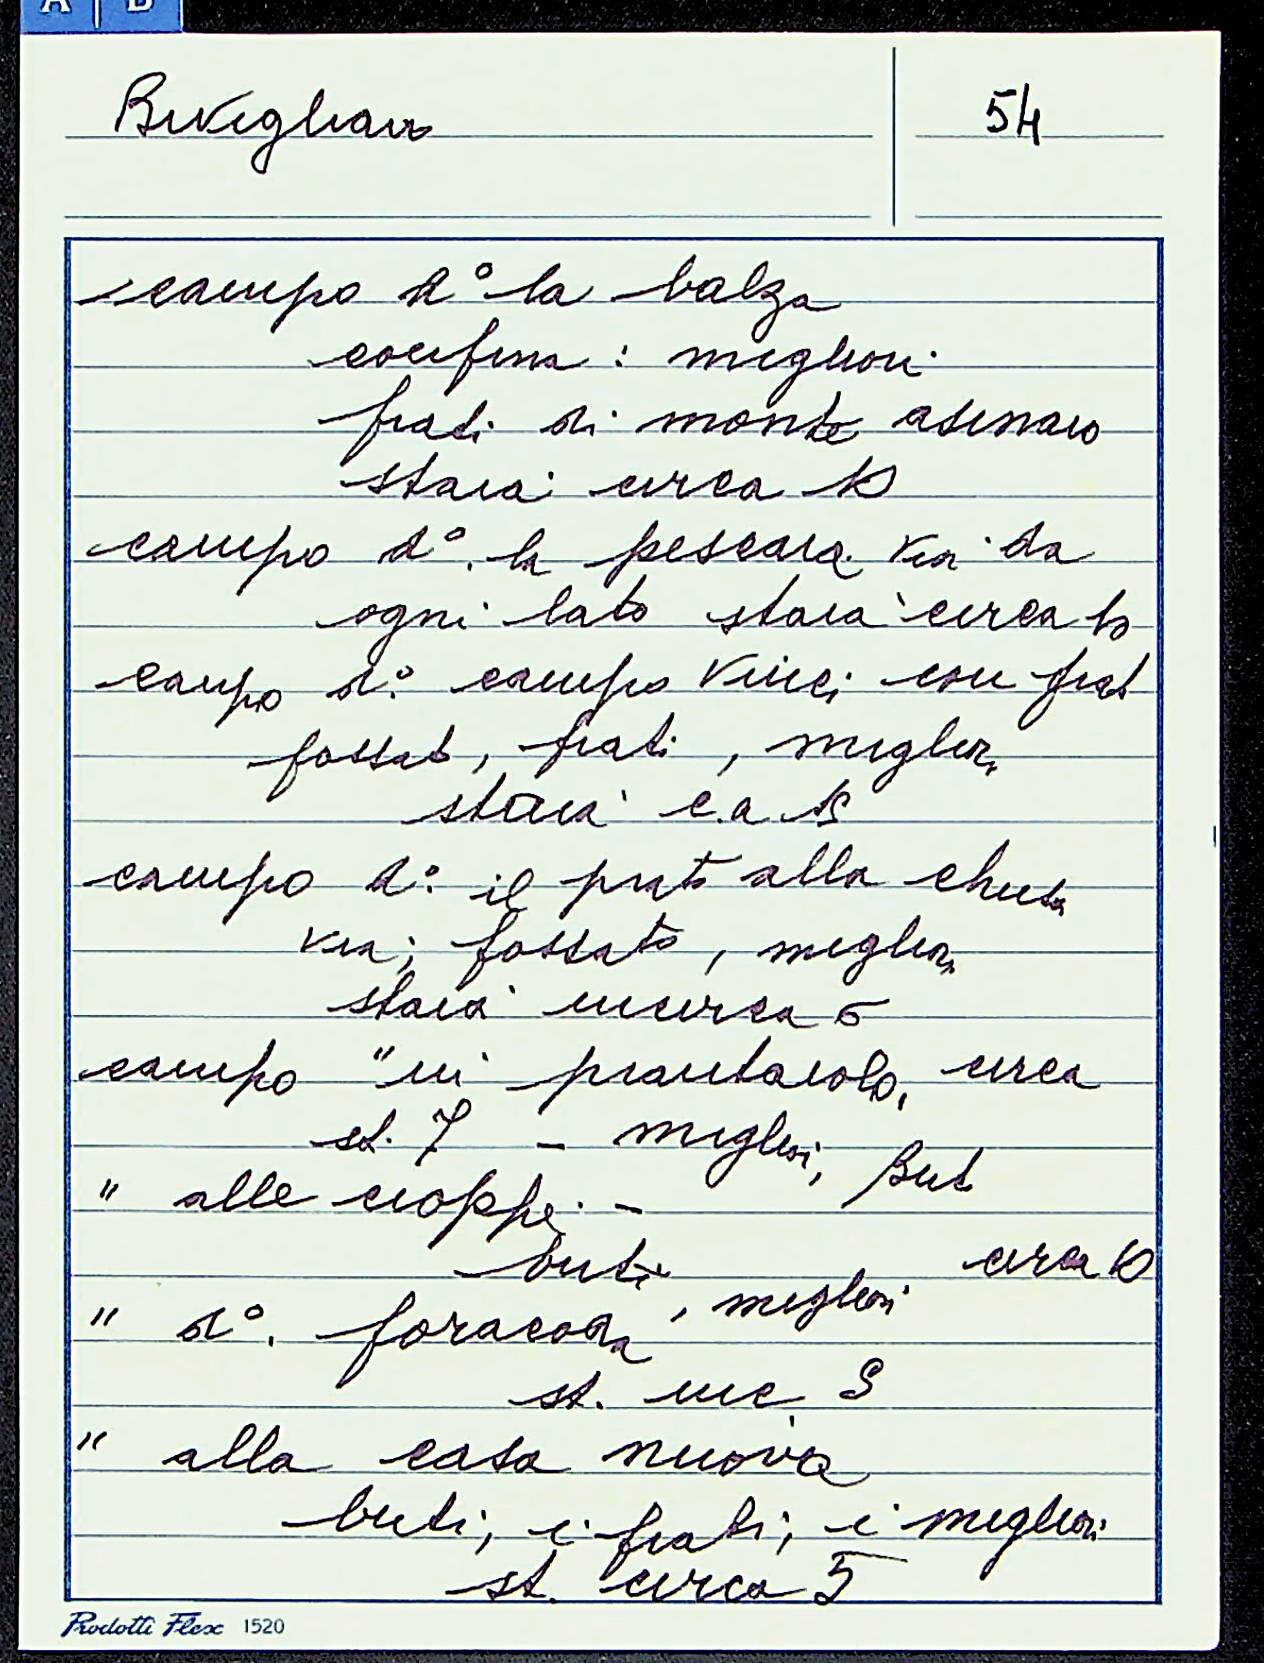 A | B
Bivigliano
54
campo d° la balza
confina: migliori
frati di monte asinaio
staia circa 10
campo d°. la pescaia via da
ogni lato staia circa 10
campo d°. campo Vinci con frat
fossato, frati, migliori
staia c.a
campo d°. il prato alla
via; fossato, migliori
staia incirca 6
campo "in circa
st. 7 - migliori, But
" alle cioppe -
buti circa 10
" d°. foracoda, migliori
st. inc.
" alla casa nuova
buti, i frati, i migliori
st. circa 5
Prodotti Flex 1520